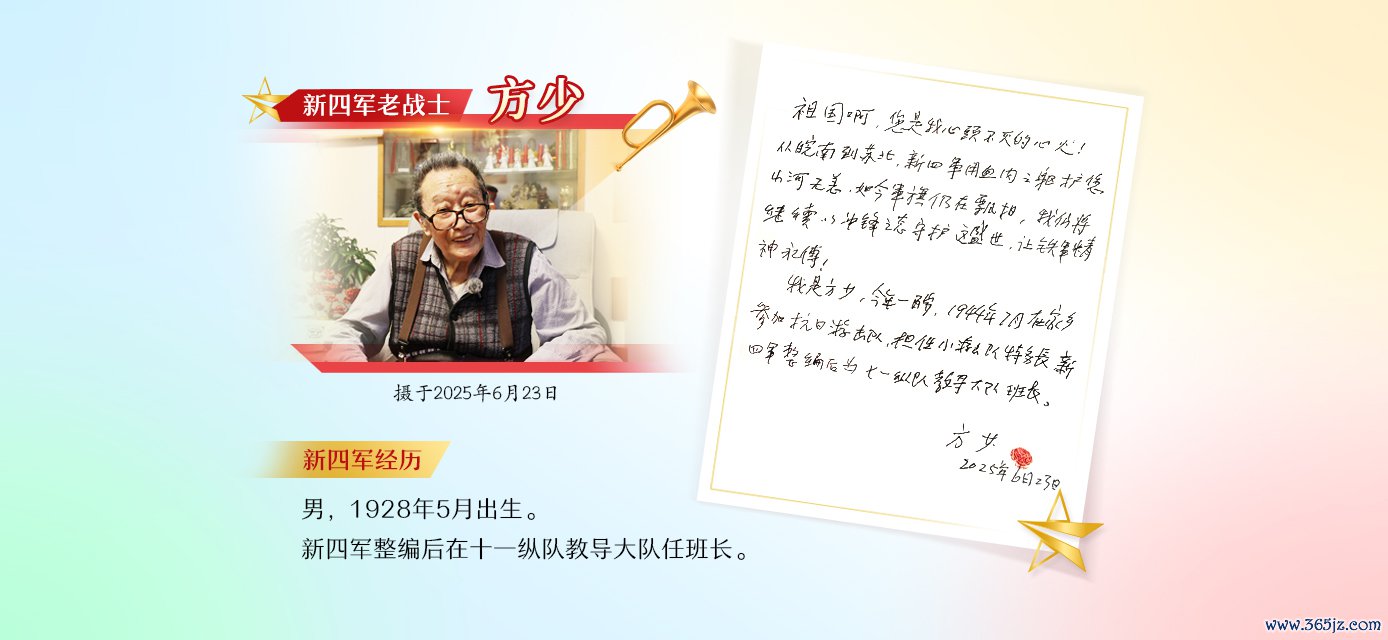 新四军老战士 方少
摄于2025年6月23日
新四军经历
男，1928年5月出生。
新四军整编后在十一纵队教导大队任班长。
祖国啊，您是我心头不灭的心火！
从皖南到苏北，新四军用血肉之躯护您
山河无恙，如今军旗仍在飘扬，我们将
继续以冲锋之态守护这盛世，让铁军精
神永传！
我是方少，今年一，1944年7月在家乡
参加抗日游击队，担任小队长，新
四军整编后为十一纵队教导大队班长。
方少
2025年6月23日
www.365jz.com